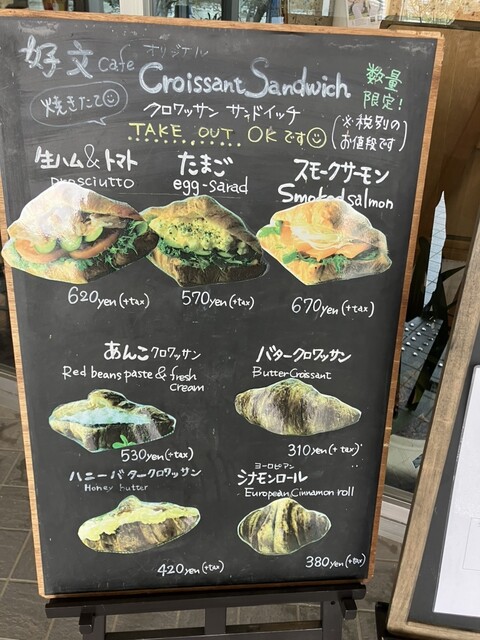 好文 cafe オリジナル
Croissant Sandwich
数量
限定!
焼きたて
クロワッサン サンドイッチ
(※税別の
お値段です)
TAKE OUT OKです
生ハム&トマト
prosciutto
たまご
egg-sarad
スモークサーモン
Smoked salmon
620yen(+tax)
570yen(+tax)
670yen(+tax)
あんこクロワッサン
Red beans paste & fresh
cream
バタークロワッサン
Butter Croissant
530yen(+tax)
310yen(+tax)
ハニーバタークロワッサン
Honey butter
ヨーロピアン
シナモンロール
European Cinnamon roll
420yen(+tax)
380yen(+tax)